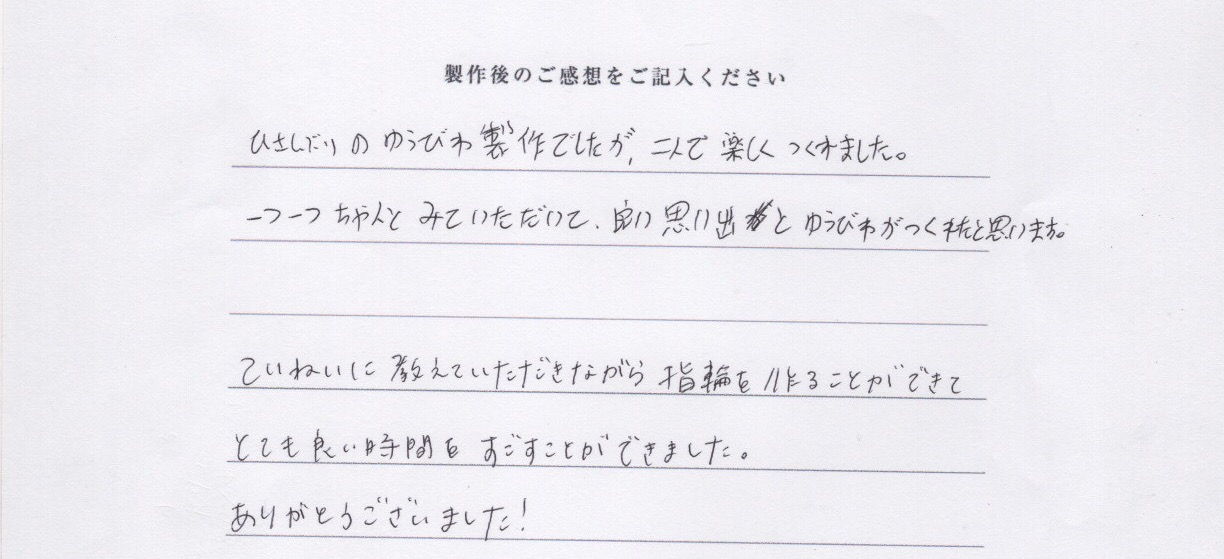 製作後のご感想をご記入ください
ひさしぶりのゆうびわ製作でしたが、二人で楽しくつくれました。
一つ一つちゃんとみていただいて、良い思い出とゆうびわがつくれたと思います。
ていねいに教えていただきながら指輪を作ることができて
とても良い時間をすごすことができました。
ありがとうございました!